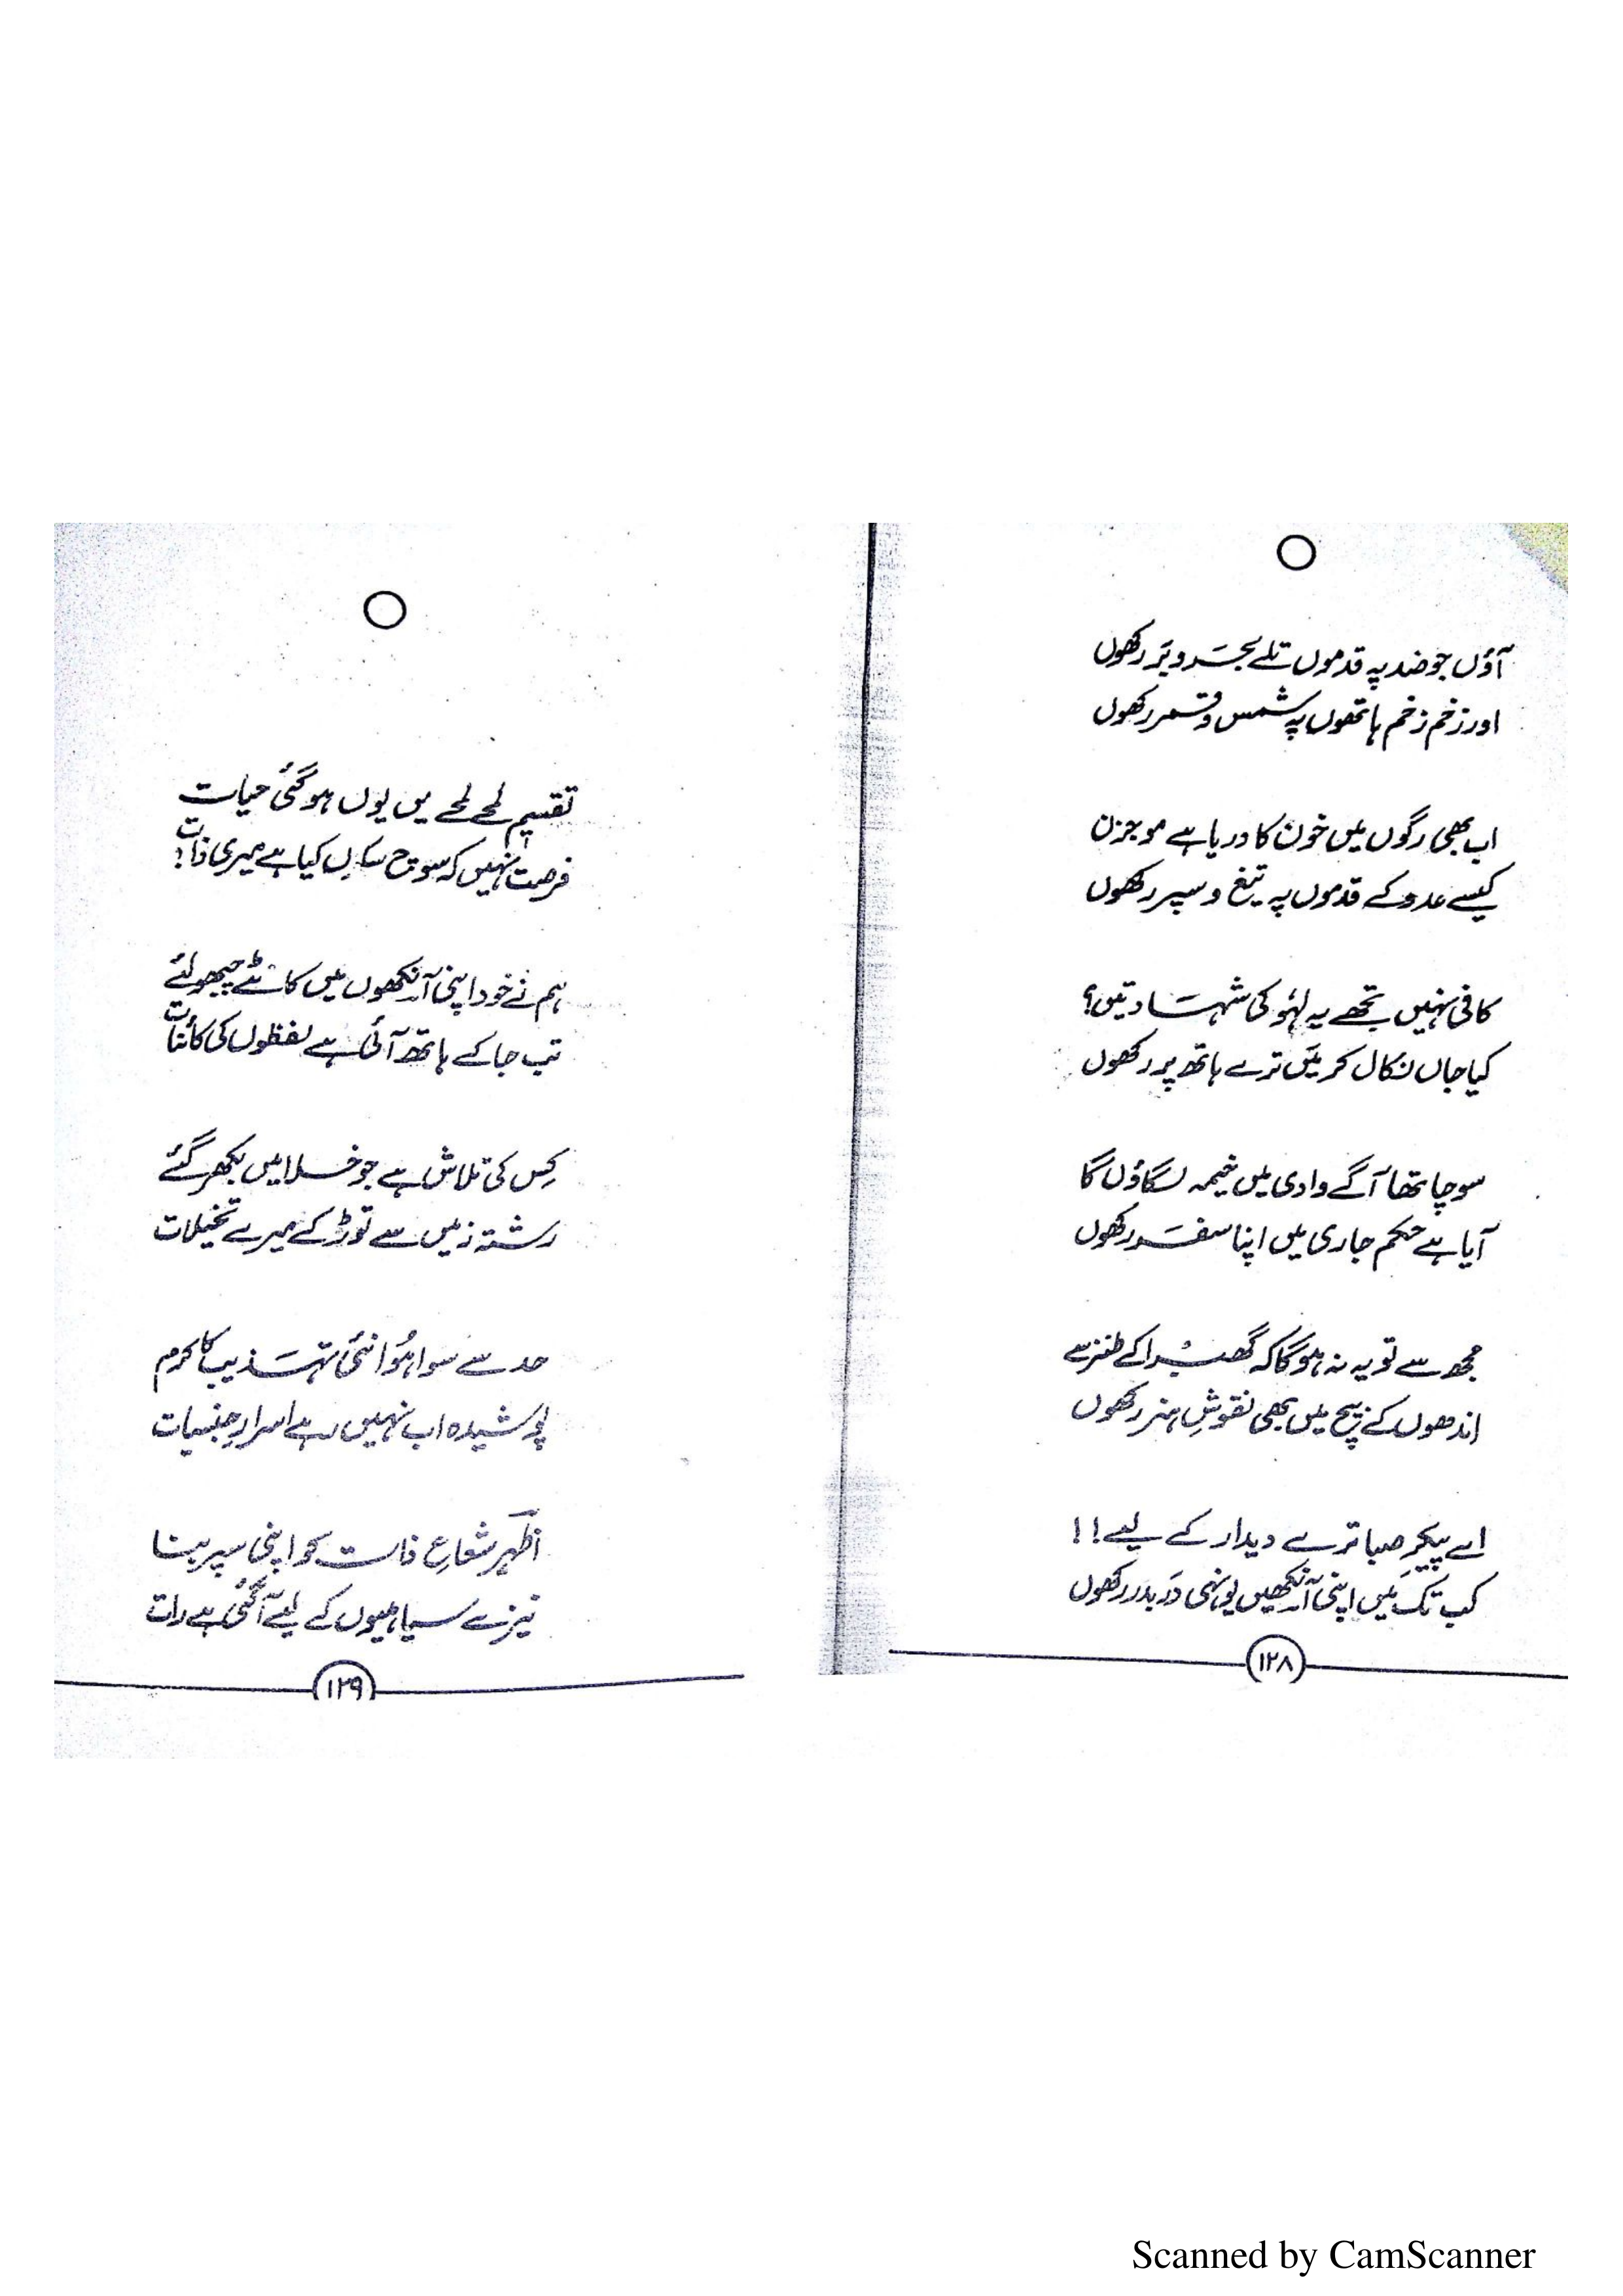 آؤں جو ضد پہ قدموں تلے بحر و بَر رکھوں
اور زخم زخم ہاتھوں پہ شمس و قمر رکھوں
اب بھی رگوں میں خون کا دریا ہے موجزن
کیسے عدو کے قدموں پہ تیغ و سپر رکھوں
کافی نہیں تجھے یہ لہُو کی شہادتیں؟
کیا جاں نکال کر مَیں ترے ہاتھ پر رکھوں
سوچا تھا آگے وادی میں خیمہ لگاؤں گا
آیا ہے حکم جاری میں اپنا سفَر رکھوں
مجھ سے تو یہ نہ ہوگا کہ گھبرا کے طنز سے
اندھوں کے بیچ میں بھی نقوشِ ہنر رکھوں
اے پیکرِ صبا ترے دیدار کے لیے!!
کب تک مَیں اپنی آنکھیں یونہی دَر بدر رکھوں
۱۲۸
تقسیم لمحے لمحے میں یوں ہوگئی حیات
فرصت نہیں کہ سوچ سکوں کیا ہے میری ذات؟
ہم نے خود اپنی آنکھوں میں کانٹے چبھو لئے
تب جا کے ہاتھ آئی ہے لفظوں کی کائنات
کِس کی تلاش ہے جو خلا میں بکھر گئے
رشتہ زمیں سے توڑ کے میرے تخیلات
حد سے سوا ہُوا نئی تہذیب کا کرم
پوشیدہ اب نہیں رہے اسرارِ جنسیات
اظہر شعاعِ ذات کو اپنی سپر بنا
نیزے سیاہیوں کے لیے آگئی ہے رات
۱۲۹
Scanned by CamScanner